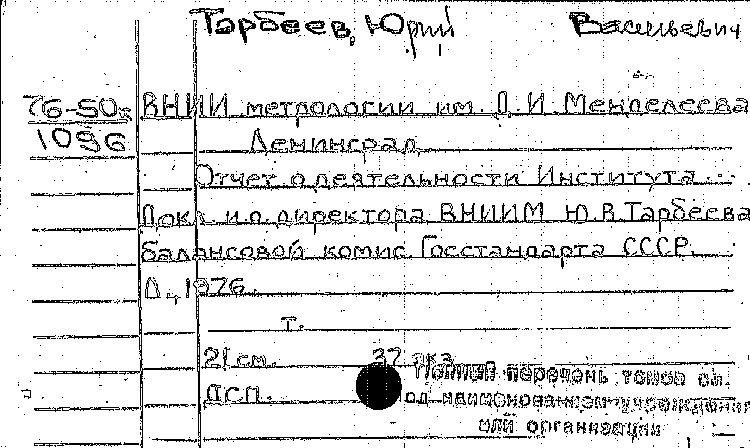 Тарбеев, Юрий Васильевич
76-50к ВНИИ метрологии им. Д.И. Менделеева
1096 Ленинград
Отчет о деятельности Института...
Докл. и.о. директора ВНИИМ Ю.В. Тарбеева
балансовой комис. Госстандарта СССР.
Л., 1976.
т.
21 см. 37 экз.
ДСП.
Полный перечень томов см.
под наименованием учреждения
или организации